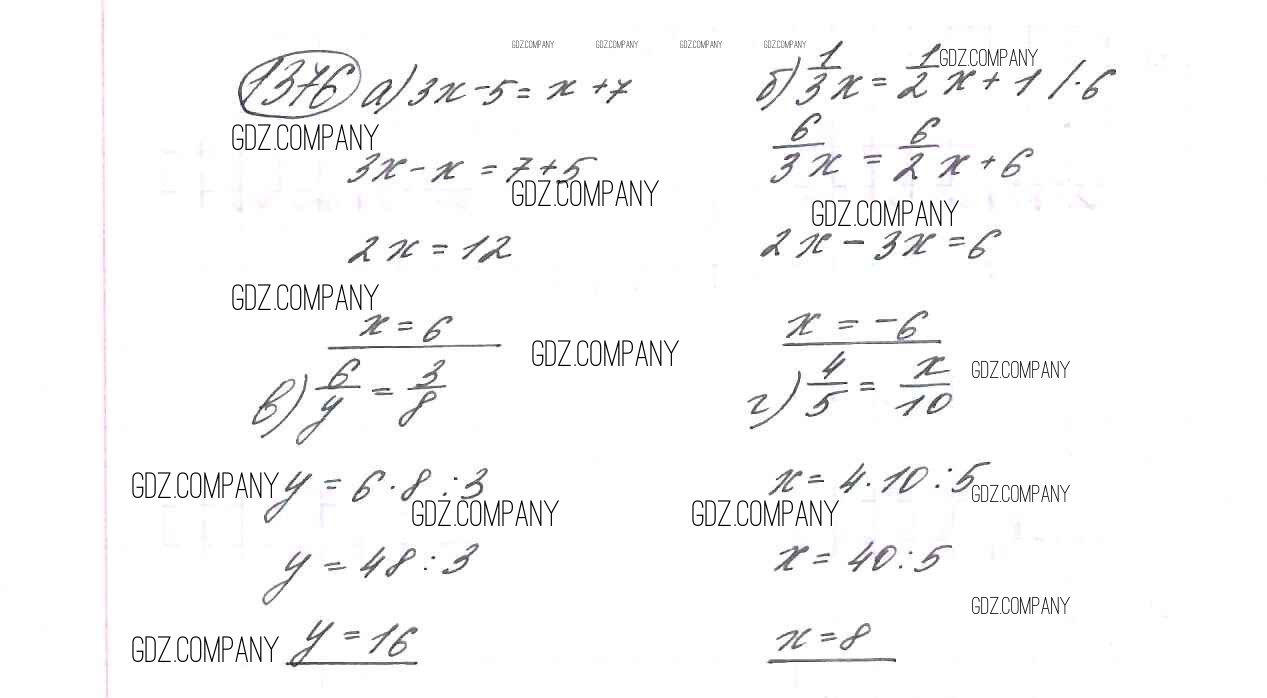 GDZ.COMPANY GDZ.COMPANY GDZ.COMPANY GDZ.COMPANY
1376 а) 3x - 5 = x + 7
GDZ.COMPANY
3x - x = 7 + 5
GDZ.COMPANY
2x = 12
GDZ.COMPANY
x = 6
GDZ.COMPANY
б) 1/3 x = 1/2 x + 1 /·6
GDZ.COMPANY
6/3 x = 6/2 x + 6
GDZ.COMPANY
2x - 3x = 6
x = -6
в) 6/y = 3/8
GDZ.COMPANY y = 6 · 8 : 3
GDZ.COMPANY
y = 48 : 3
GDZ.COMPANY y = 16
г) 4/5 = x/10
GDZ.COMPANY
x = 4 · 10 : 5
GDZ.COMPANY
GDZ.COMPANY
x = 40 : 5
GDZ.COMPANY
x = 8